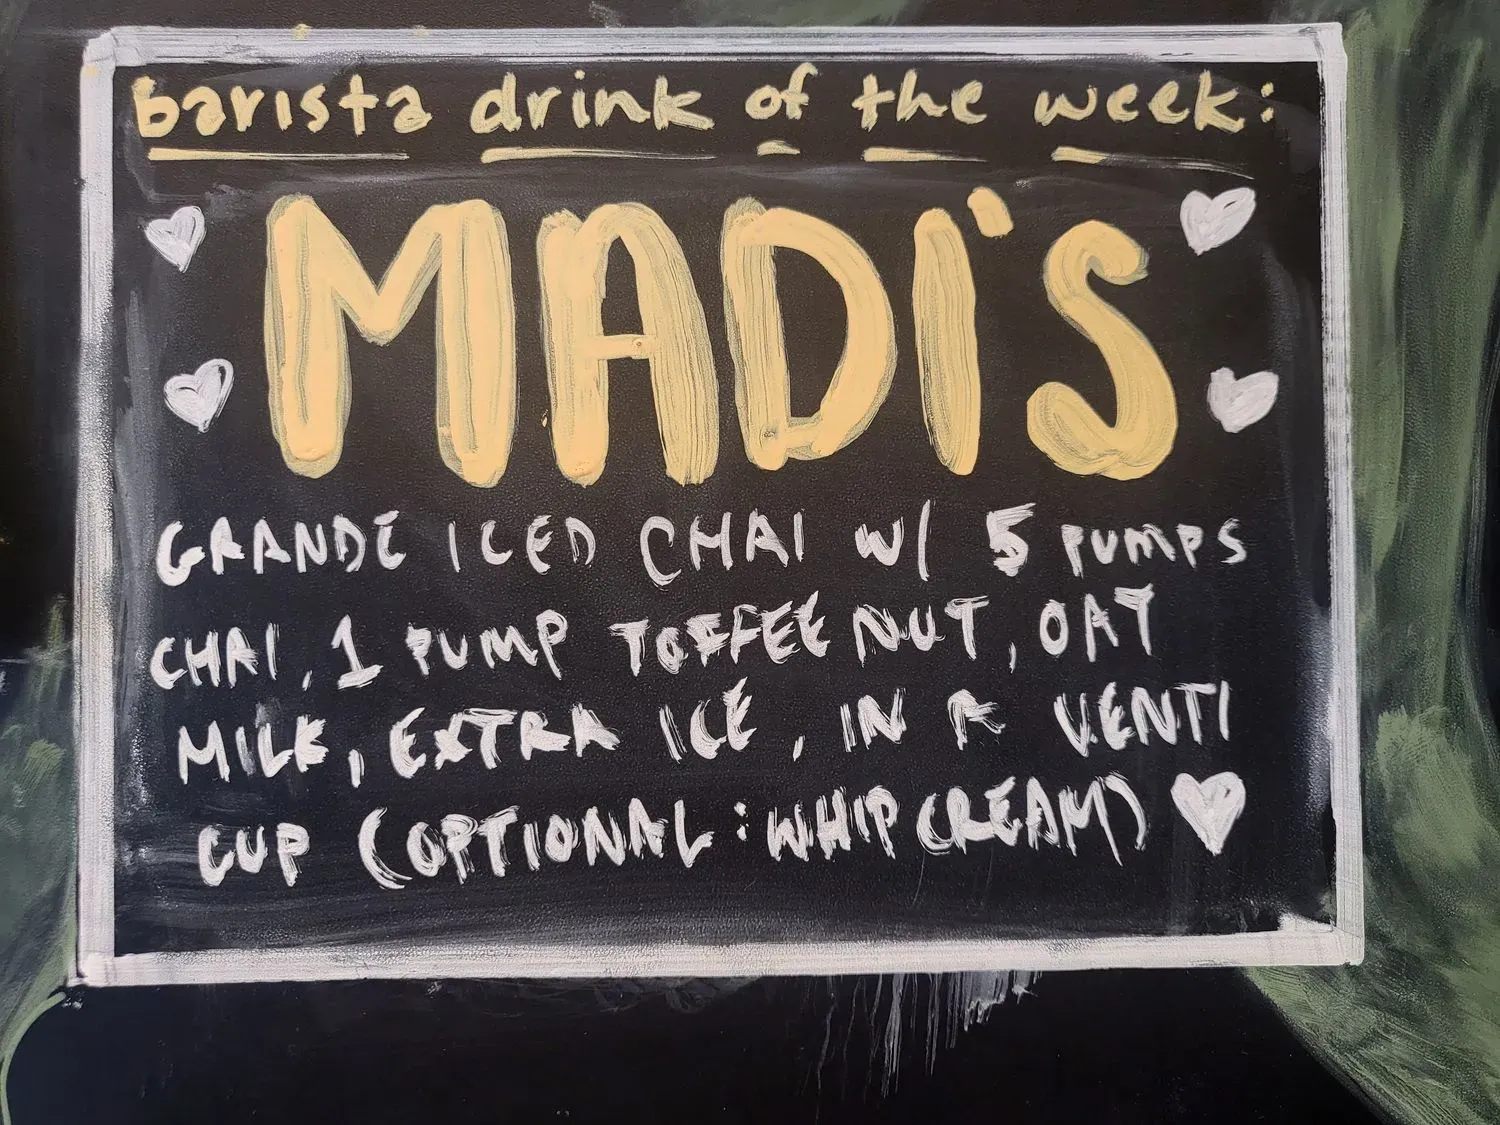 barista drink of the week:
MADI'S
GRANDE ICED CHAI W/ 5 PUMPS
CHAI, 1 PUMP TOFFEE NUT, OAT
MILK, EXTRA ICE, IN A VENTI
CUP (OPTIONAL: WHIP CREAM)